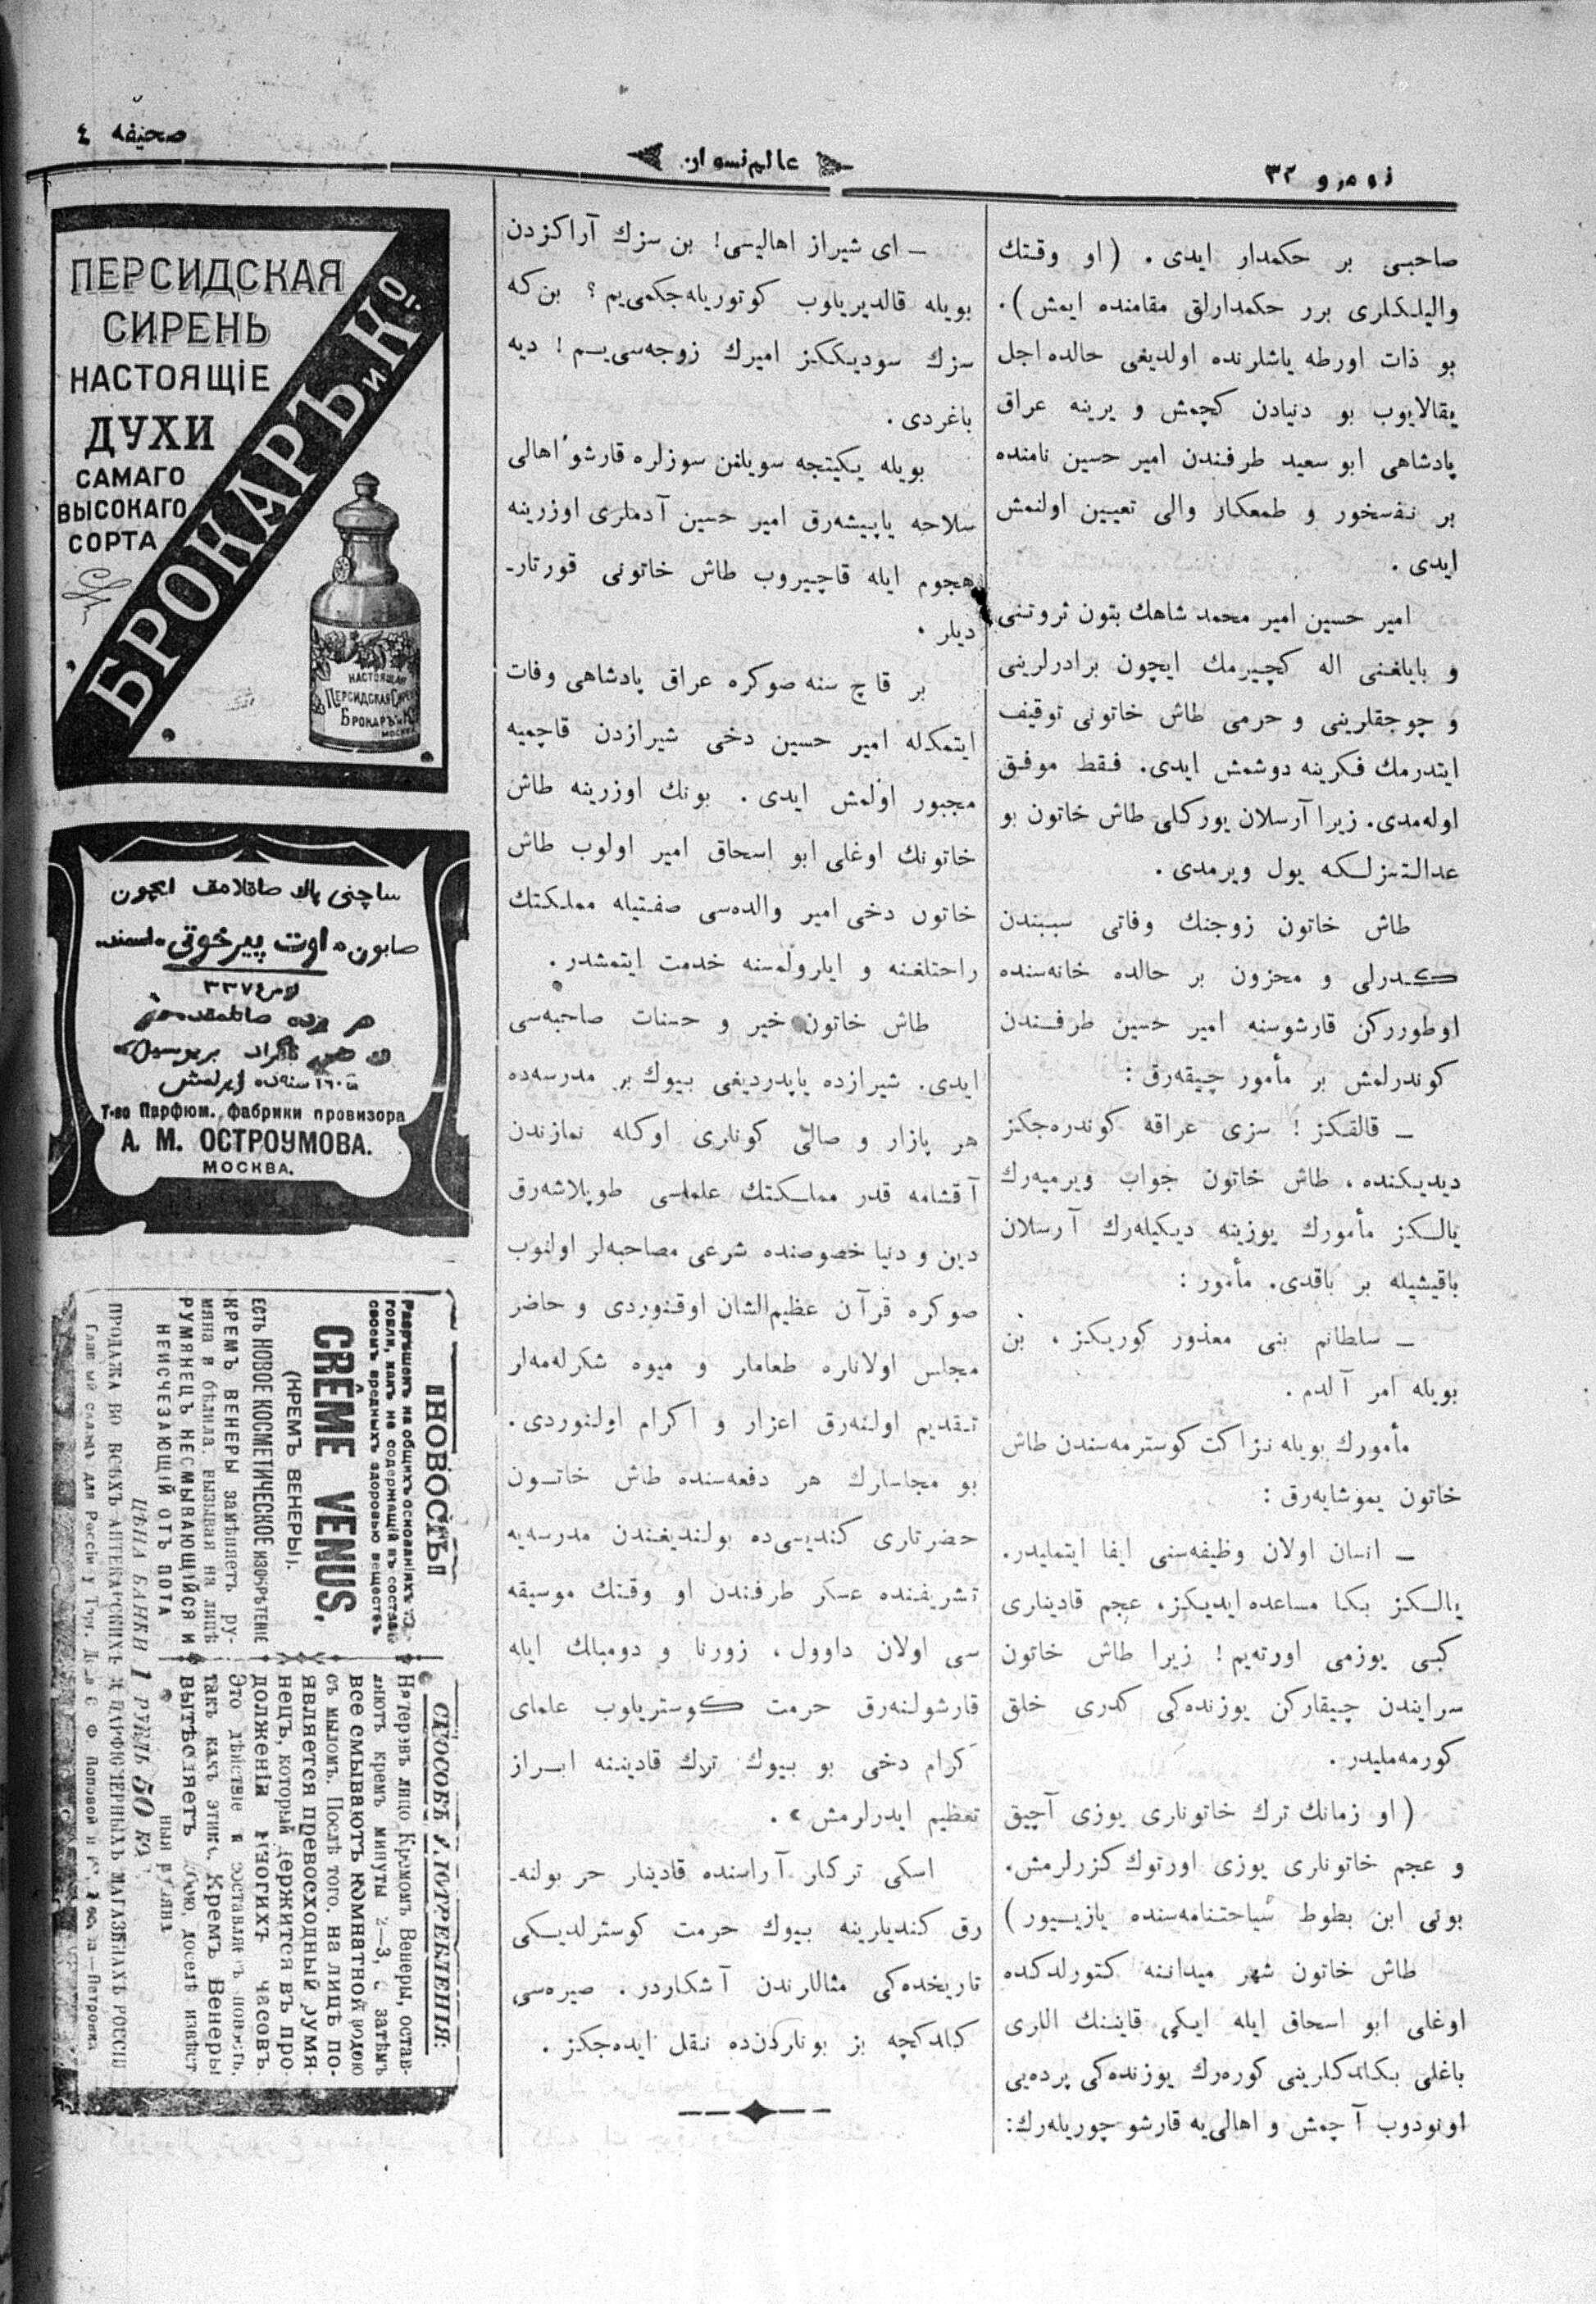 نومرو ٣٢
عالم نسوان
صحيفه ٤
صاحبى بر حكمدار ايدى. (او وقتك
واليلكلرى برر حكمدارلق مقامنده ايمش).
بو ذات اورطه ياشلرنده اولديغى حالده اجل
يقالايوب بو دنيادن كچمش و يرينه عراق
پادشاهى ابو سعيد طرفندن امير حسين نامنده
بر نفسخور و طمعكار والى تعيين اولنمش
ايدى.
امير حسين امير محمد شاهك بتون ثروتنى
و باياغنى اله كچيرمك ايچون برادرلرينى
و چوجقلرينى و حرمى طاش خاتونى توقيف
ايتدرمك فكرينه دوشمش ايدى. فقط موفق
اوله‌مدى. زيرا آرسلان يوركلى طاش خاتون بو
عدالتسزلكه يول ويرمدى.
طاش خاتون زوجنك وفاتى سببندن
كدرلى و محزون بر حالده خانه‌سنده
اوطورركن قارشوسنه امير حسين طرفندن
كوندرلمش بر مأمور چيقه‌رق:
ـ قالقكز! سزى عراقه كوندره‌جكز
ديديكنده، طاش خاتون جواب ويرميه‌رك
يالكز مأمورك يوزينه ديكيله‌رك آرسلان
باقيشيله بر باقدى. مأمور:
ـ سلطانم بنى معذور كوريكز، بن
بويله امر آلدم.
مأمورك بويله نزاكت كوسترمه‌سندن طاش
خاتون يموشايه‌رق:
ـ انسان اولان وظيفه‌سنى ايفا ايتمليدر.
يالكز بكا مساعده ايديكز، عجم قادينلرى
كبى يوزمى اورته‌يم! زيرا طاش خاتون
سرايندن چيقاركن يوزنده‌كى كدرى خلق
كورمه‌مليدر.
(او زمانك ترك خاتونلرى يوزى آچيق
و عجم خاتونلرى يوزى اورتوك كزرلرمش.
بونى ابن بطوط سياحتنامه‌سنده يازيـيور)
طاش خاتون شهر ميداننه كتورلدكده
اوغلى ابو اسحاق ايله ايكى قاينـنك اللرى
باغلى بكلدكلرينى كوره‌رك يوزنده‌كى پرده‌يى
اونودوب آچمش و اهالى‌يه قارشو چوريله‌رك:
ـ اى شيراز اهاليسى! بن سزك آراكزدن
بويله قالديريلوب كوتوريله‌جكمى‌يم؟ بن كه
سزك سوديككز اميرك زوجه‌سى‌يـم! ديه
باغردى.
بويله يكيتجه سويلنن سوزلره قارشو اهالى
سلاحه ياپيشه‌رق امير حسين آدملرى اوزرينه
هجوم ايله قاچيروب طاش خاتونى قورتار-
ديلر.
بر قاچ سنه صوكره عراق پادشاهى وفات
ايتمكله امير حسين دخى شيرازدن قاچميه
مجبور اولمش ايدى. بونك اوزرينه طاش
خاتونك اوغلى ابو اسحاق امير اولوب طاش
خاتون دخى امير والده‌سى صفتيله مملكتك
راحتلغنه و ايلرولمسنه خدمت ايتمشدر.
طاش خاتون خير و حسنات صاحبه‌سى
ايدى. شيرازده ياپدرديغى بيوك بر مدرسه‌ده
هر پازار و صالى كونلرى اوكله نمازندن
آقشامه قدر مملكتك علماسى طوپلاشه‌رق
دين و دنيا خصوصنده شرعى مصاحبه‌لر اولنوب
صوكره قرآن عظيم‌الشان اوقنوردى و حاضر
مجلس اولانلره طعاملر و ميوه شكرله‌مه‌لر
تقديم اولنه‌رق اعزار و اكرام اولنوردى.
بو مجلسلرك هر دفعه‌سنده طاش خاتـون
حضرتلرى كنديسى‌ده بولنديغندن مدرسه‌يه
تشريفنده عسكر طرفندن او وقتك موسيقه
سى اولان داوول، زورنا و دومبلك ايله
قارشولنه‌رق حرمت كوستريلوب علماى
كرام دخى بو بيوك ترك قاديننه ابـراز
تعظيم ايدرلرمش».
اسكى تركلر آراسنده قادينلر حر بولنه-
رق كنديلرينه بيوك حرمت كوسترلديكى
تاريخده‌كى مثاللرندن آشكاردر. صيره‌سى
كلدكچه بز بونلردن‌ده نقل ايده‌جكز.
ПЕРСИДСКАЯ
СИРЕНЬ
НАСТОЯЩІЕ
ДУХИ
САМАГО
ВЫСОКАГО
СОРТА
БРОКАРЪ и Кº
НАСТОЯЩАЯ
ПЕРСИДСКАЯ СИРЕНЬ
БРОКАРЪ и Кº
МОСКВА
ساچنى پاك صاقلامق ايچون
صابون
٣٣٧
هر يرده
Т-во Парфюм. фабрики провизора
А. М. ОСТРОУМОВА.
МОСКВА.
НОВОСТЬ
Разрѣшенъ на общихъ основаніяхъ тор-
говли, какъ не содержащій въ составѣ
своемъ вредныхъ здоровью веществъ
CRÊME VENUS,
(КРЕМЪ ВЕНЕРЫ).
ЕСТЬ НОВОЕ КОСМЕТИЧЕСКОЕ ИЗОБРѢТЕНІЕ
КРЕМЪ ВЕНЕРЫ замѣняетъ ру-
мяна и бѣлила, вызывая на лицѣ
РУМЯНЕЦЪ НЕСМЫВАЮЩІЙСЯ И
НЕИСЧЕЗАЮЩІЙ ОТЪ ПОТА
СПОСОБЪ УПОТРЕБЛЕНІЯ:
Натеревъ лицо Кремомъ Венеры, остав-
ляютъ кремъ минуты 2—3, а затѣмъ
все смываютъ комнатной водою
съ мыломъ. Послѣ того, на лицѣ по-
является превосходный румя-
нецъ, который держится въ про-
долженіи многихъ часовъ.
Это дѣйствіе и составляетъ новость,
такъ какъ этимъ Кремъ Венеры
вытѣсляетъ собою, доселѣ извѣст
ныя румяна
ЦѢНА БАНКИ 1 РУБЛЬ 50 КОП.
ПРОДАЖА ВО ВСѢХЪ АПТЕКАРСКИХЪ И ПАРФЮМЕРНЫХЪ МАГАЗИНАХЪ РОССІИ
Главный складъ для Россіи у Торг. Д-ва С. Ф. Поповой и Кº, Москва—Петровка